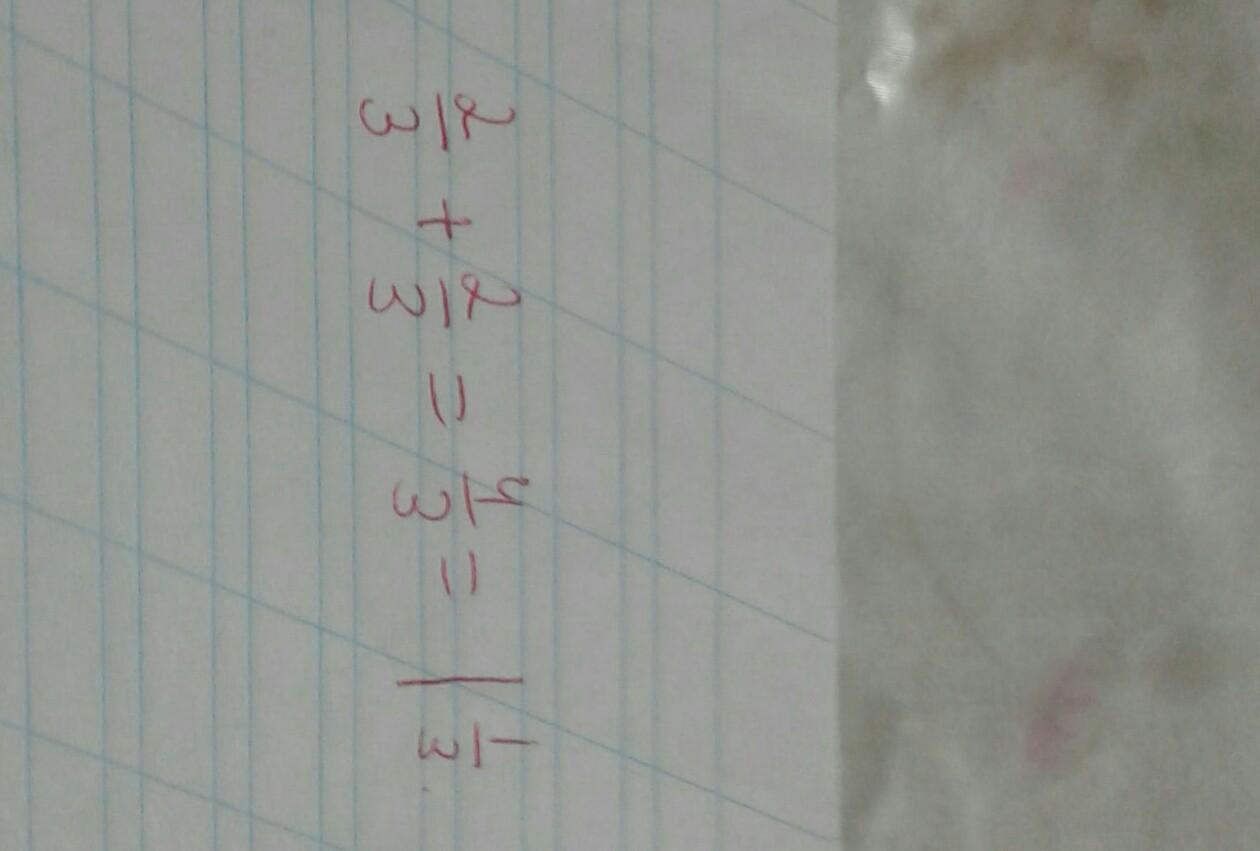 2/3 + 2/3 = 4/3 = 1 1/3